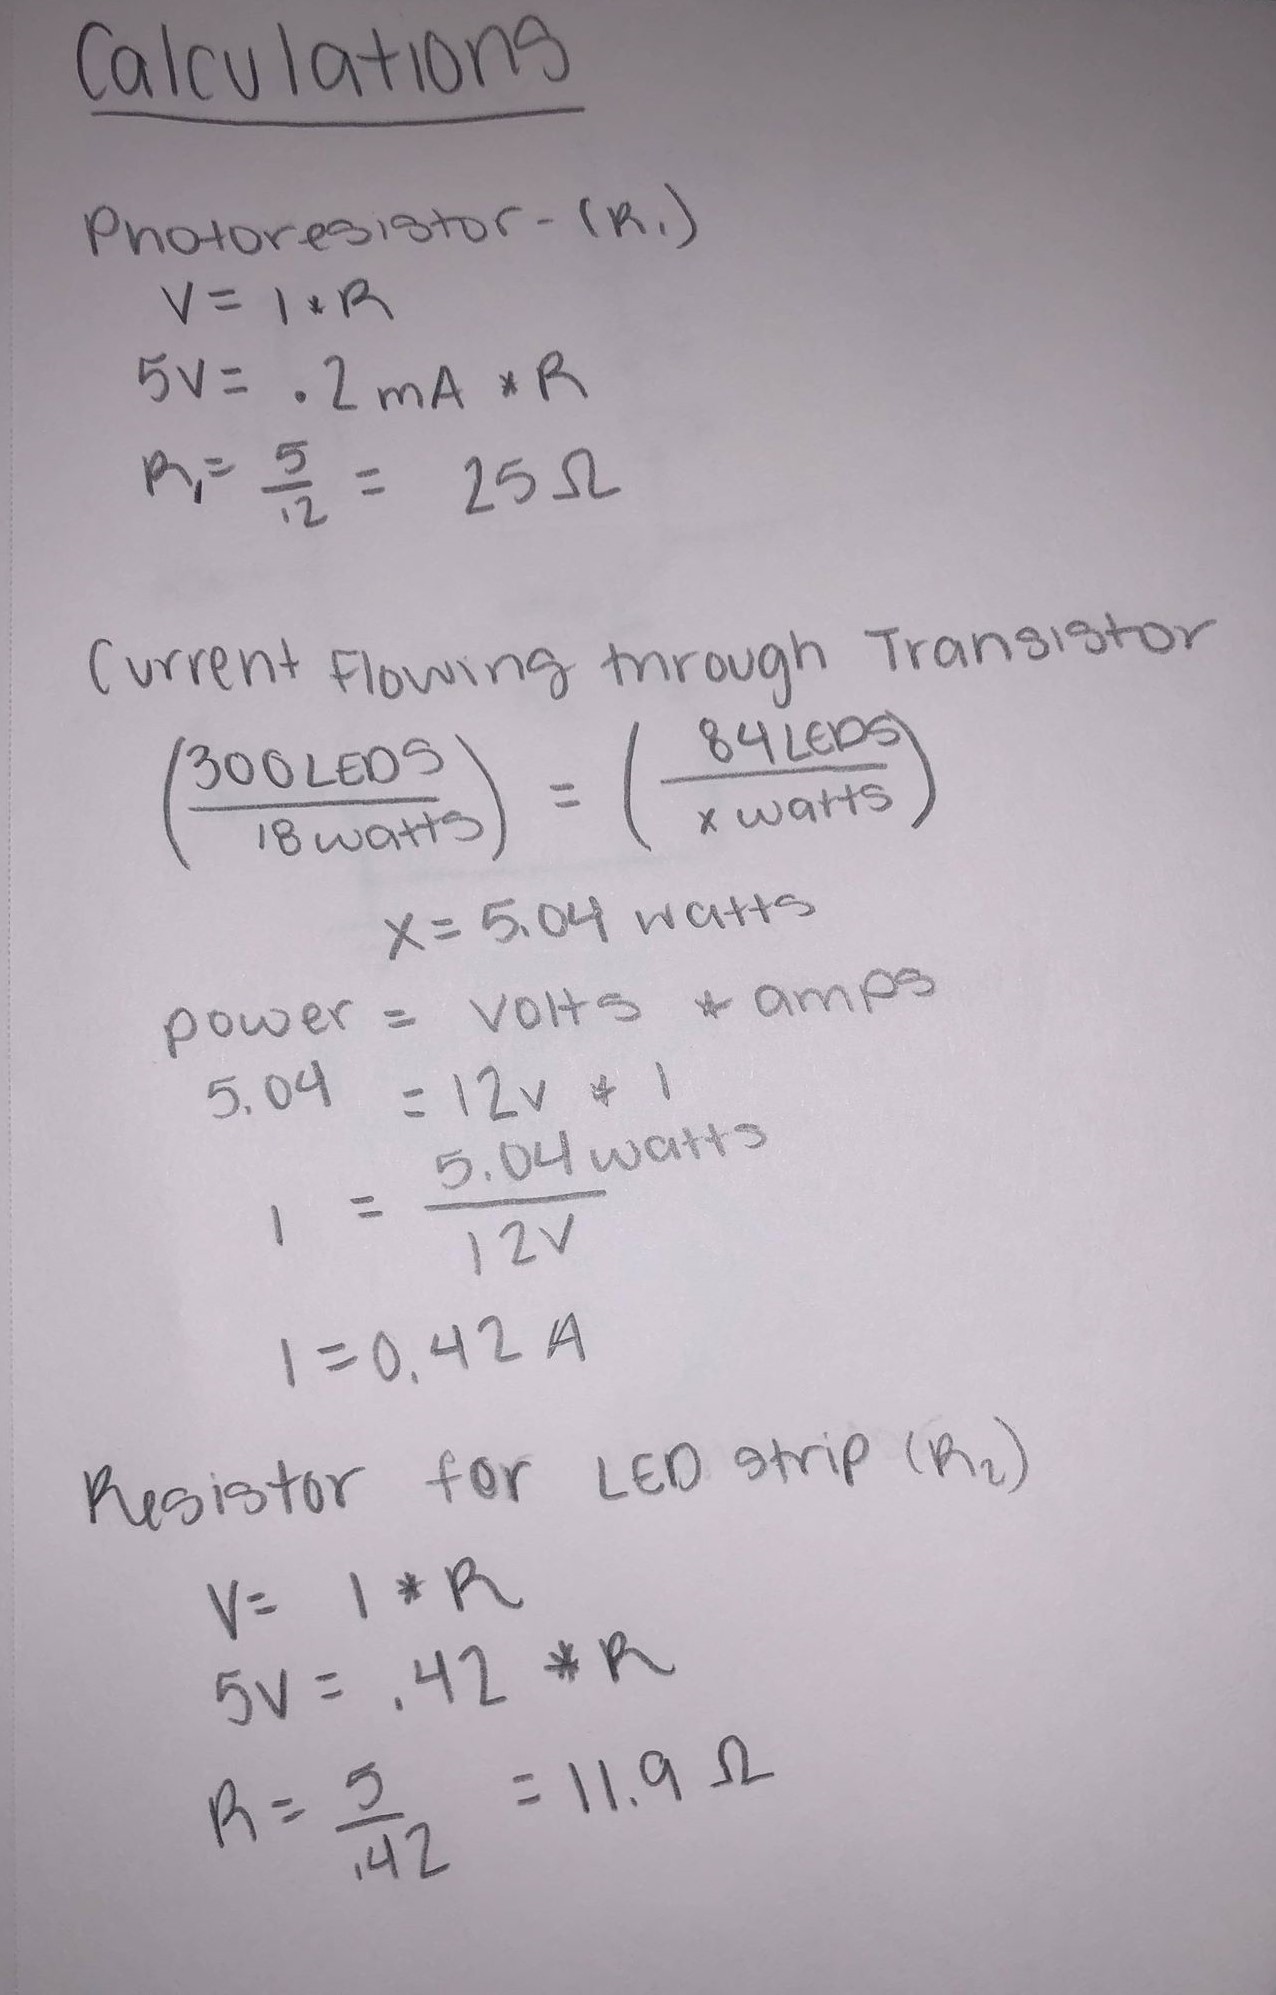 Calculations
Photoresistor - (R₁)
V = I * R
5V = .2 mA * R
R₁ = 5/.2 = 25 Ω
Current Flowing through Transistor
(300 LEDS / 18 watts) = (84 LEDS / x watts)
x = 5.04 watts
power = volts * amps
5.04 = 12v * I
I = 5.04 watts / 12V
I = 0.42 A
Resistor for LED strip (R₂)
V = I * R
5V = .42 * R
R = 5/.42 = 11.9 Ω